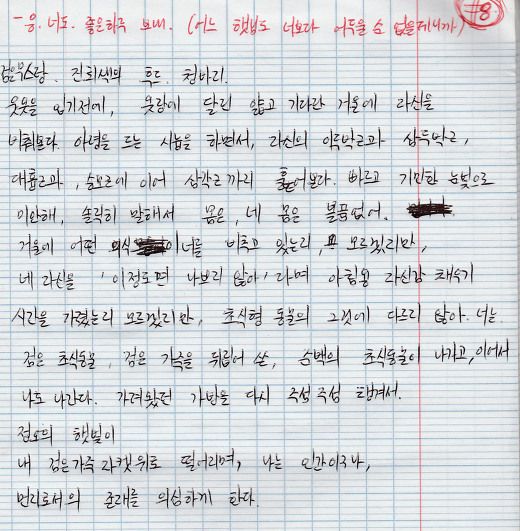 - 응. 너도. 좋은하루 보내. (어느 햇빛도 너보다 어두울 순 없을테니까) #8
검은머스탱. 진회색의 후드. 청바지.
윗옷을 입기전에, 옷장에 달린 얇고 기다란 거울에 자신을
비춰본다. 아령을 드는 시늉을 하면서, 자신의 이두박근과 삼두박근,
대흉근과, 승모근에 이어 삼각근까지 훑어본다. 빠르고 기민한 눈빛으로
미안해, 솔직히 말해서 몸은, 네 몸은 볼품없어.
거울에 어떤 의식이 너를 비추고 있는지, 모르겠지만,
네 자신을 '이정도면 나쁘지 않아' 라며 아침용 자신감 채우기
시간을 가졌는지 모르겠지만, 초식형 동물의 그것에 다르지 않아. 너는
검은 초식동물, 검은 가죽을 뒤집어 쓴, 순백의 초식동물이 나가고, 이어서
나도 나간다. 가져왔던 가방을 다시 주섬 주섬 챙겨서.
정오의 햇빛이
내 검은가죽 자켓위로 떨어지며, 나는 인간이구나,
먼지로서의 존재를 의심하게 한다.